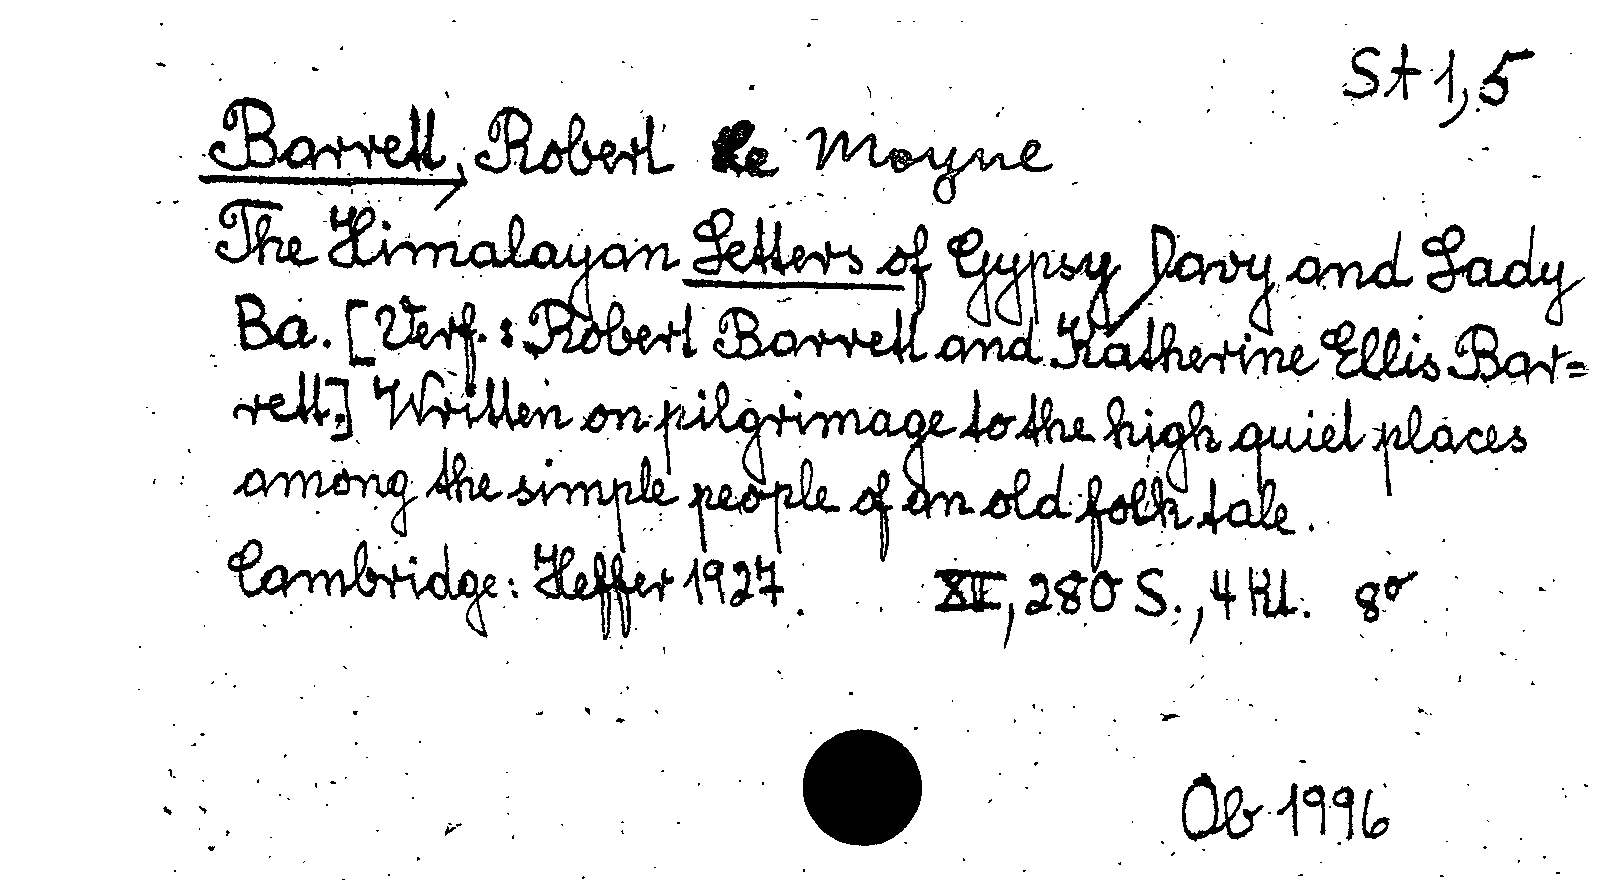 St 1,5
Barrett, Robert Le Moyne
The Himalayan Letters of Gypsy Davy and Lady
Ba. [Verf.: Robert Barrett and Katherine Ellis Bar=
rett.] Written on pilgrimage to the high quiet places
among the simple people of an old folk tale.
Cambridge: Heffer 1927. XII, 280 S., 4 Kt. 8°
Ob 1996